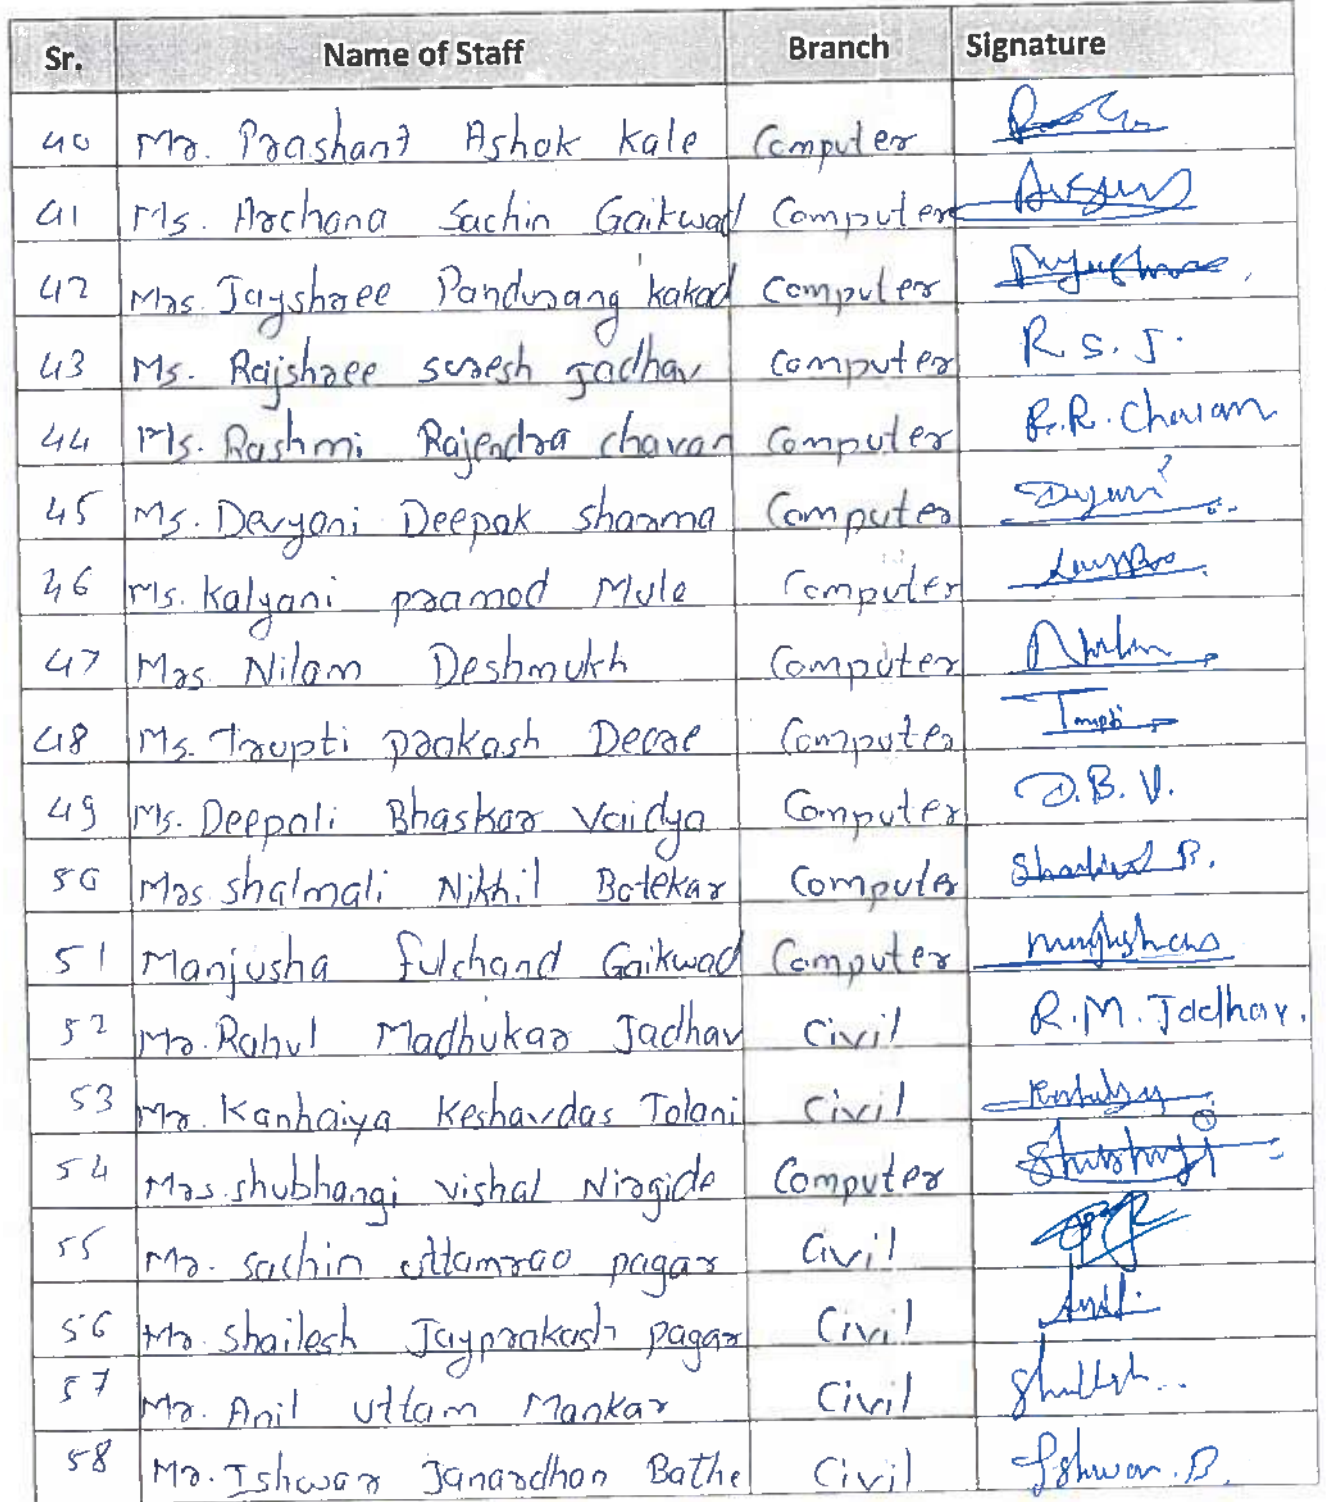 Sr. Name of Staff Branch Signature
40 Mr. Prashant Ashok Kale Computer
41 Ms. Archana Sachin Gaikwad Computer
42 Mrs. Jayshree Pandurang Kakad Computer
43 Ms. Rajshree suresh Jadhav Computer R S. J.
44 Ms. Rashmi Rajendra chavan Computer R.R. Chavan
45 Ms. Devyani Deepak sharma Computer
46 Ms. Kalyani pramod Mule Computer
47 Mrs. Nilam Deshmukh Computer
48 Ms. Trupti prakash Deore Computer Trupti
49 Ms. Deepali Bhaskar Vaidya Computer D.B.V.
50 Mrs. shalmali Nikhil Botekar Computer
51 Manjusha fulchand Gaikwad Computer
52 Mr. Rahul Madhukar Jadhav Civil R.M. Jadhav.
53 Mr. Kanhaiya Keshavdas Tolani Civil
54 Mrs. shubhangi vishal Nirgide Computer
55 Mr. sachin uttamrao pagar Civil
56 Mr. shailesh Jayprakash pagar Civil
57 Mr. Anil uttam Mankar Civil
58 Mr. Ishwar Janardhan Bathe Civil Ishwar. B.